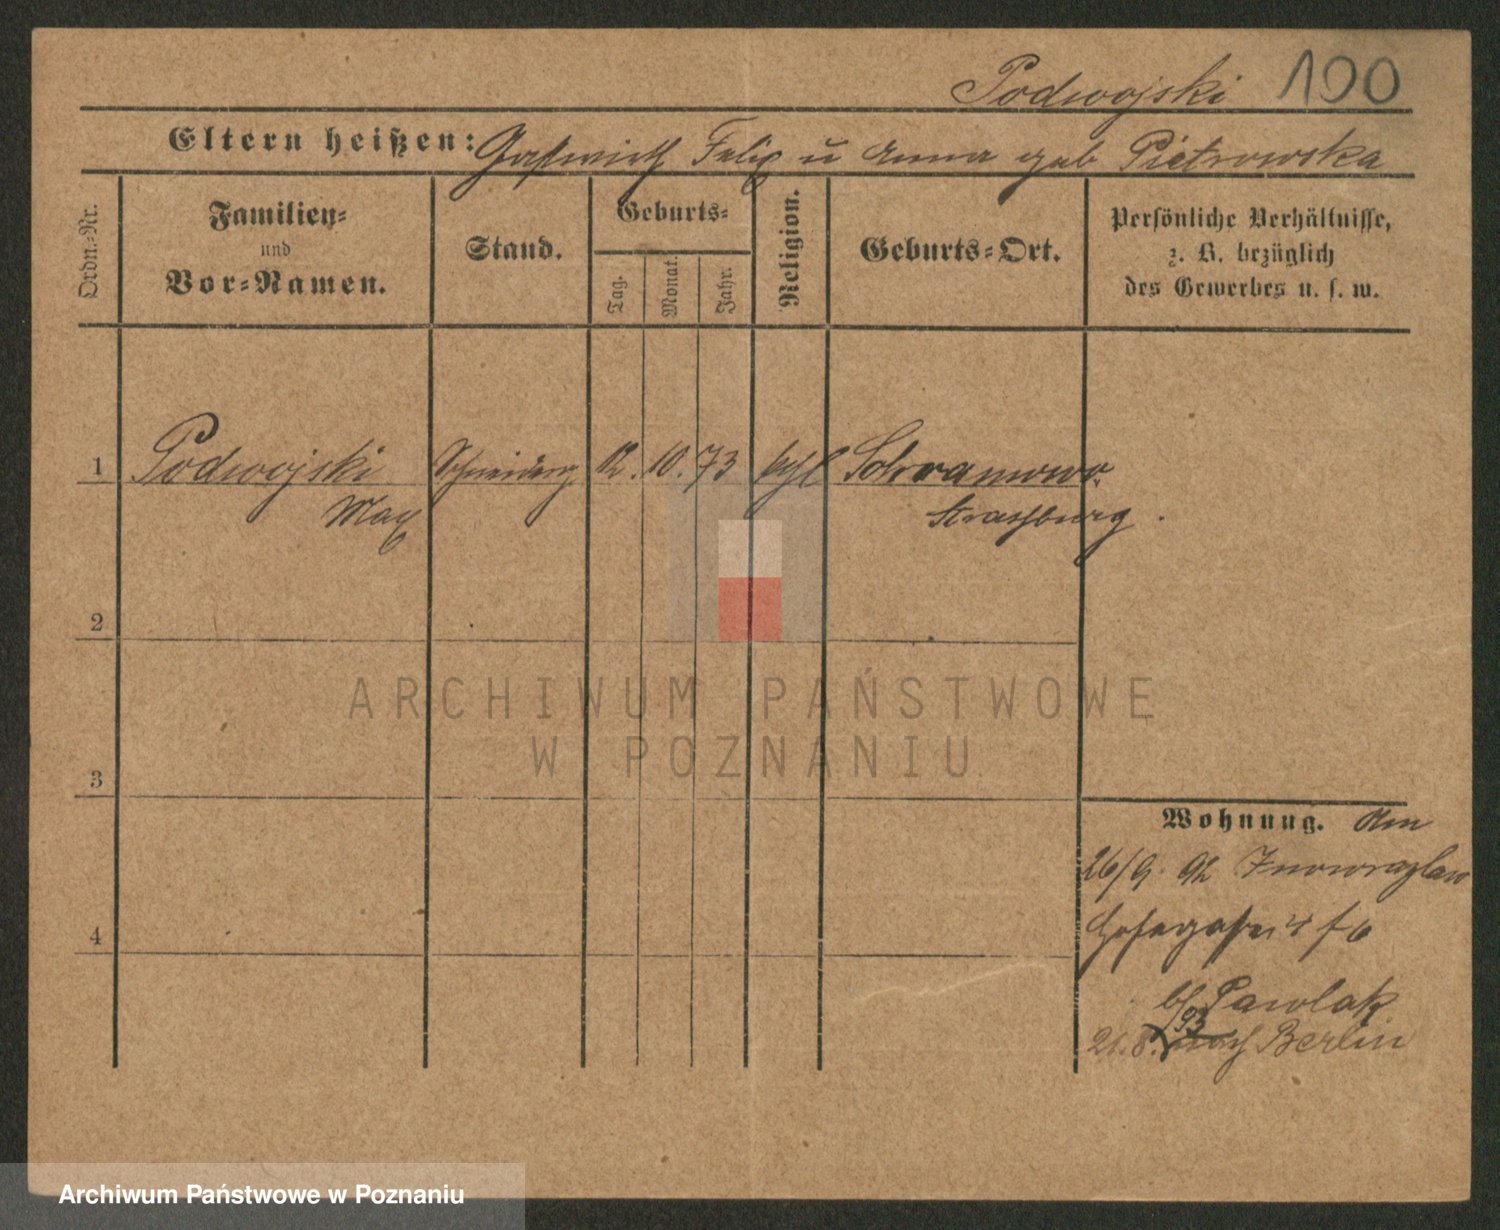 Podwojski 100
Eltern heißen: Gastwirth Felix u Anna geb Pietrowska
Ordn.=Nr.
Familien=
und
Vor=Namen.
Stand.
Geburts=
Tag.
Monat.
Jahr.
Religion.
Geburts=Ort.
Persönliche Verhältnisse,
z. B. bezüglich
des Gewerbes u. s. w.
1 Podwojski Schneiderg 12. 10. 73 kthl
Max Strassburg.
2
ARCHIWUM PAŃSTWOWE
W POZNANIU
3
Wohnung. Am
26/9. 92 Inowrazlaw
4
bei Pawlak
93
21. 8. nach Berlin
Archiwum Państwowe w Poznaniu